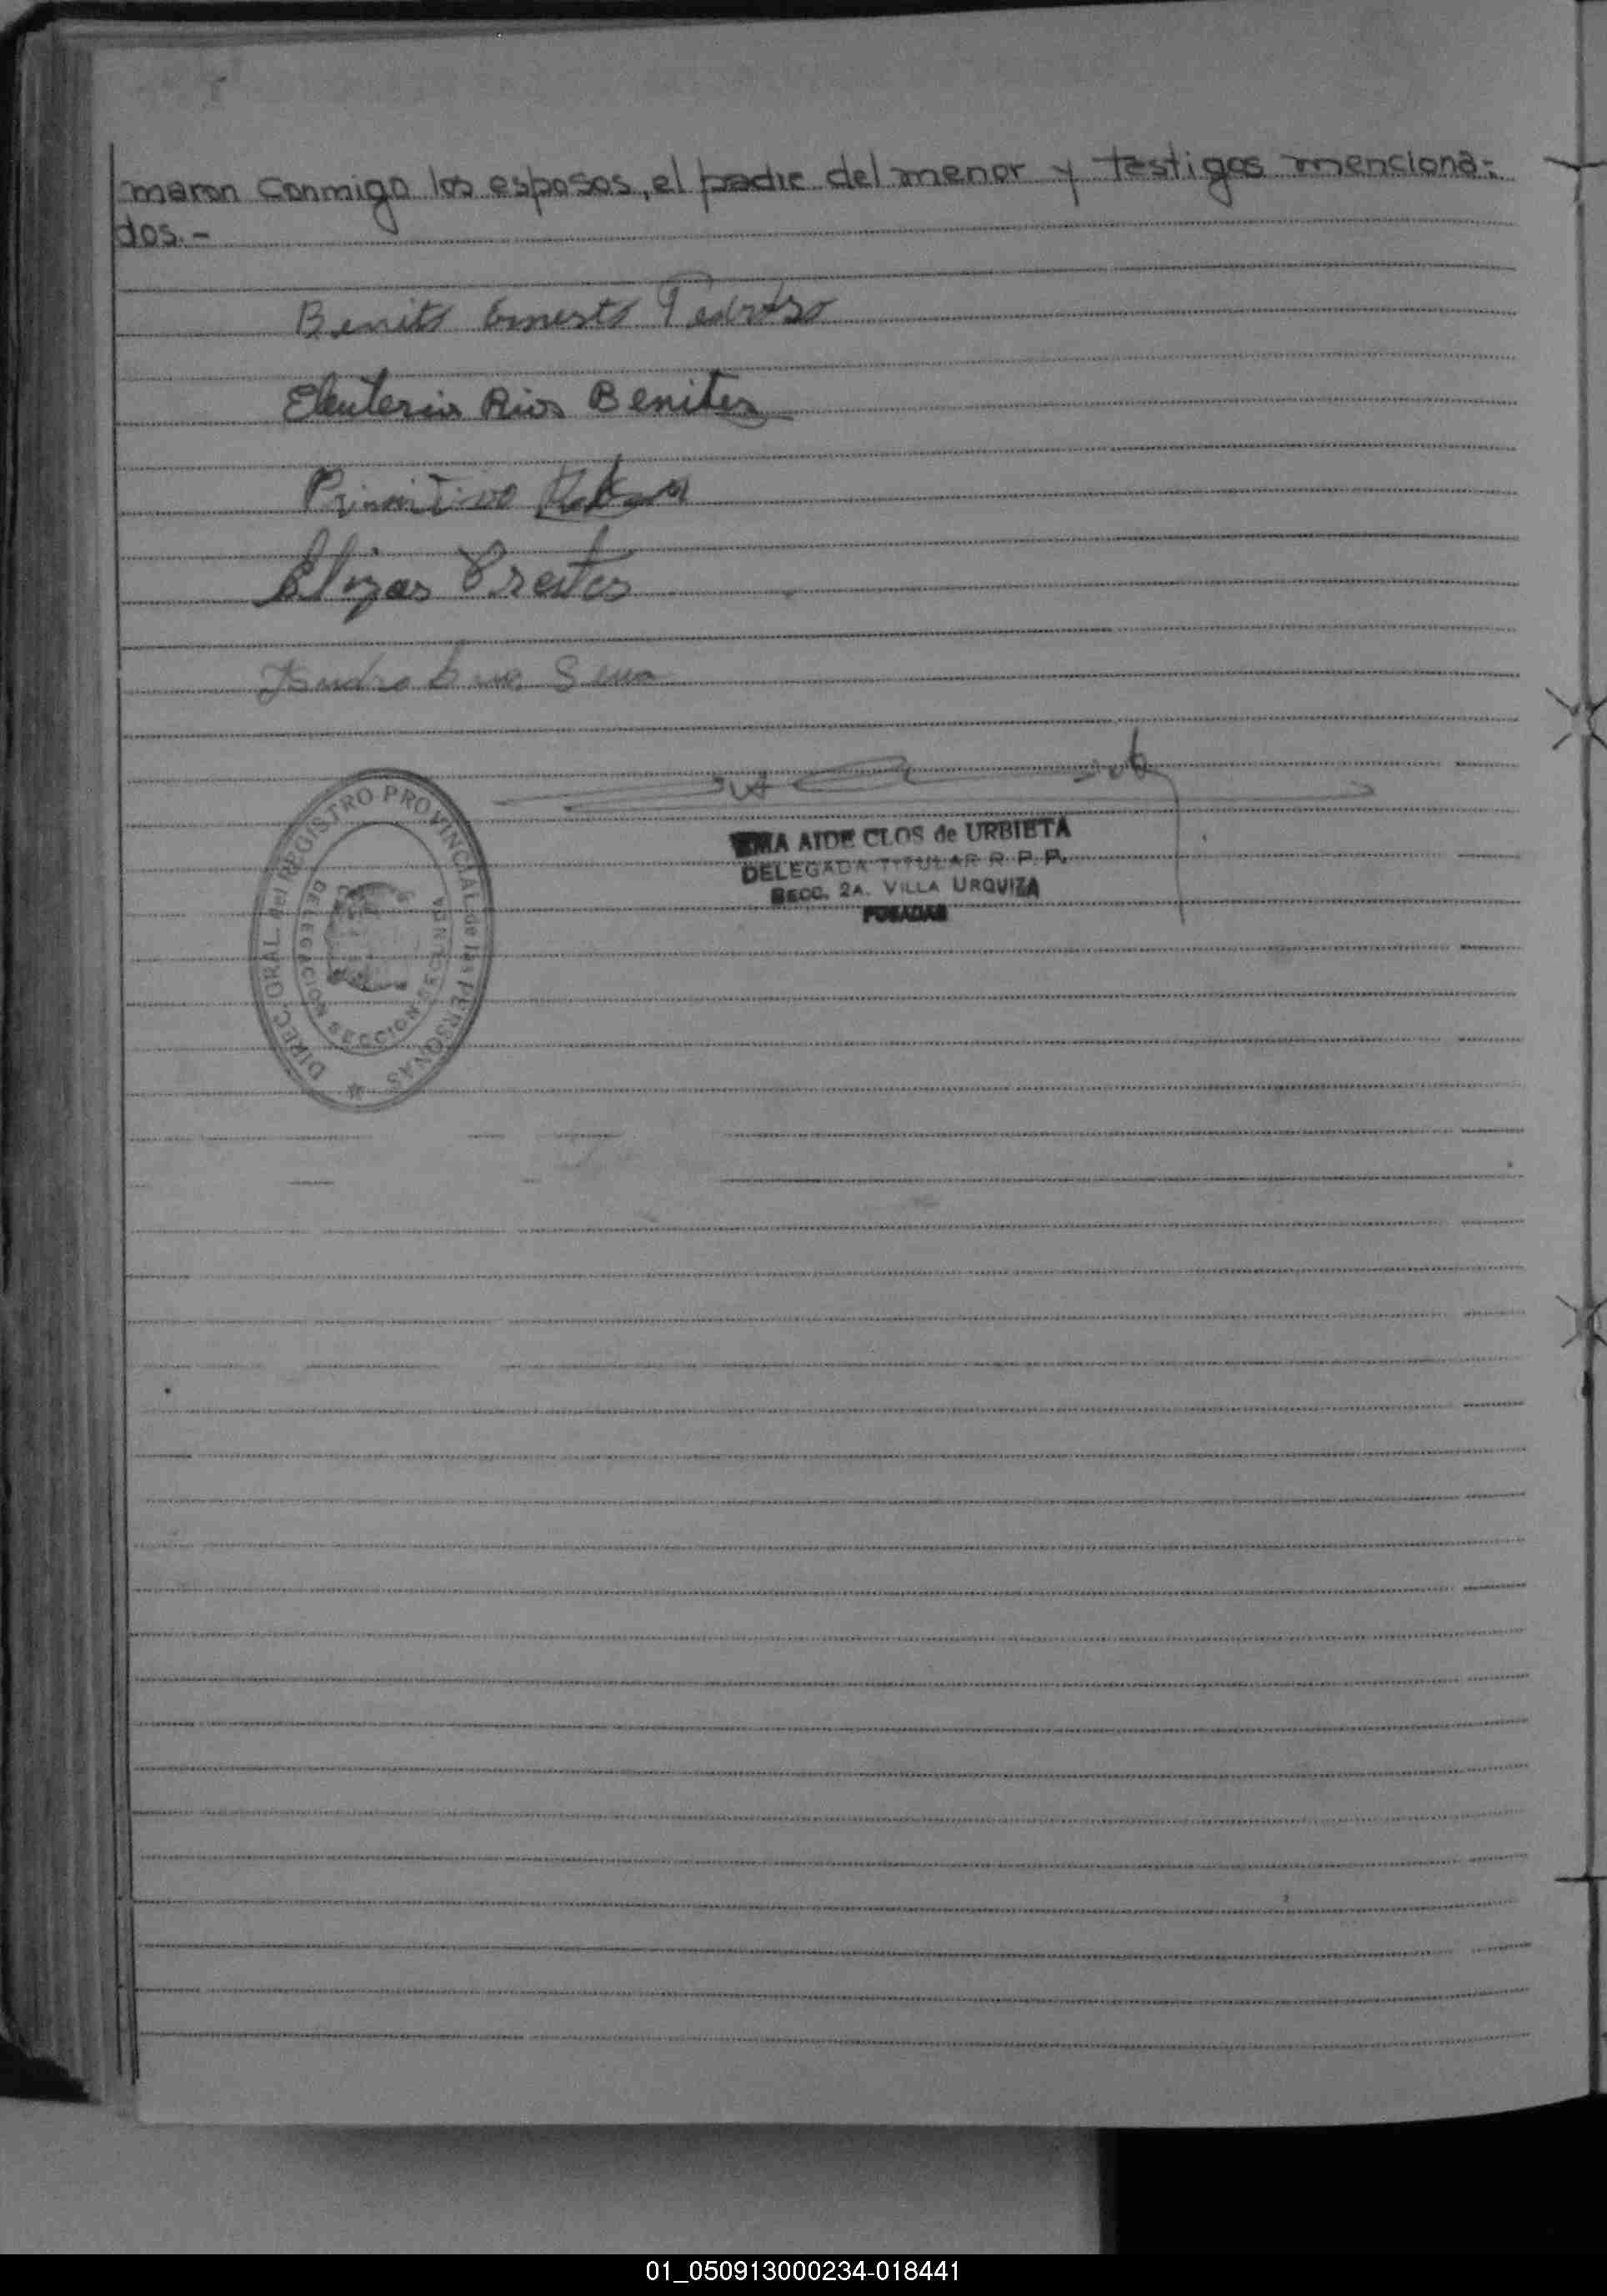 maron conmigo los esposos, el padre del menor y testigos menciona=
dos.-
Benito Ernesto Pedrozo
Eleuteria Rios Benitez
Primitivo
Elizas Preites
Isidro
AIDE CLOS de URBIETA
DELEGADA TITULAR R. P. P.
SECC. 2A. VILLA URQUIZA
POSADAS
DIREC. GRAL. del REGISTRO PROVINCIAL de las PERSONAS
DELEGACION SECCION SEGUNDA
01_050913000234-018441